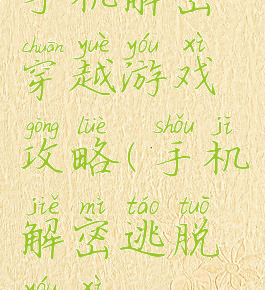 手机解密
chuān yuè yóu xì
穿越游戏
gōng lüè shǒu jī
攻略(手机
jiě mì táo tuō
解密逃脱
yóu xì